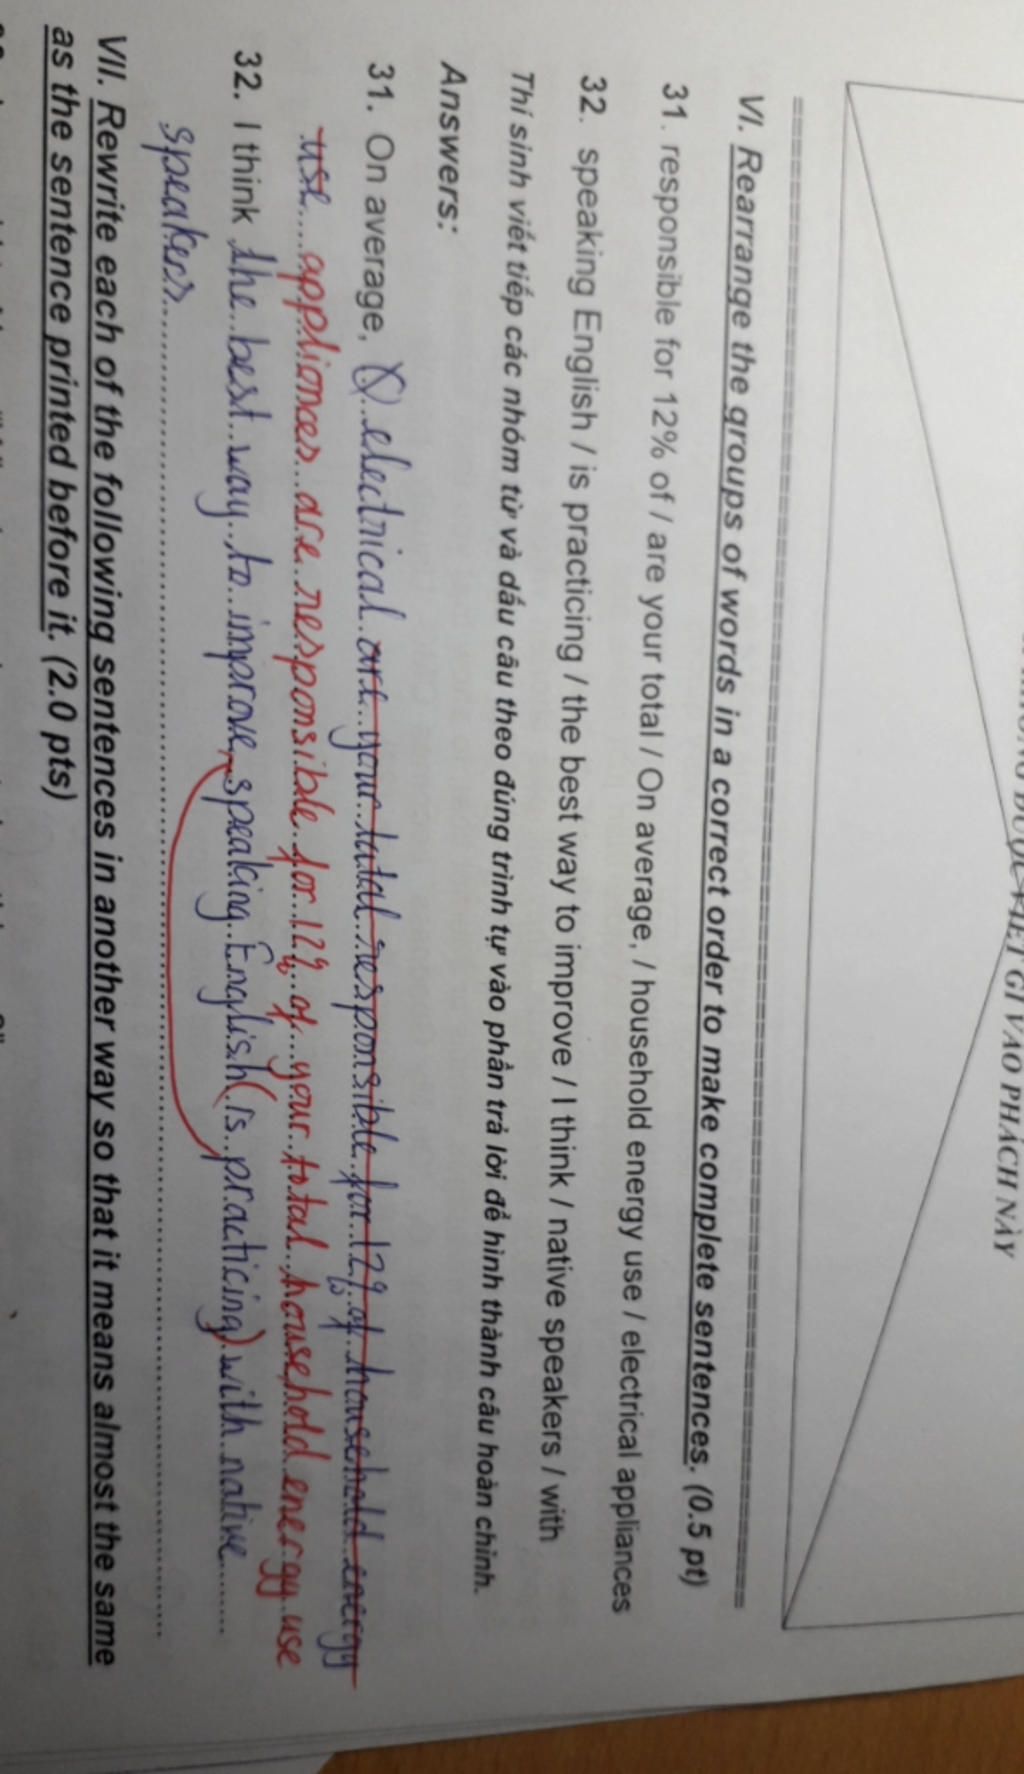 GÌ VÀO PHÁCH NÀY
VI. Rearrange the groups of words in a correct order to make complete sentences. (0.5 pt)
31. responsible for 12% of / are your total / On average, / household energy use / electrical appliances
32. speaking English / is practicing / the best way to improve / I think / native speakers / with
Thí sinh viết tiếp các nhóm từ và dấu câu theo đúng trình tự vào phần trả lời để hình thành câu hoàn chỉnh.
Answers:
31. On average, electrical are your total responsible for 12% of household energy
use appliances are responsible for 12% of your total household energy use
32. I think the best way to improve speaking English (is practicing) with native
speakers
VII. Rewrite each of the following sentences in another way so that it means almost the same
as the sentence printed before it. (2.0 pts)